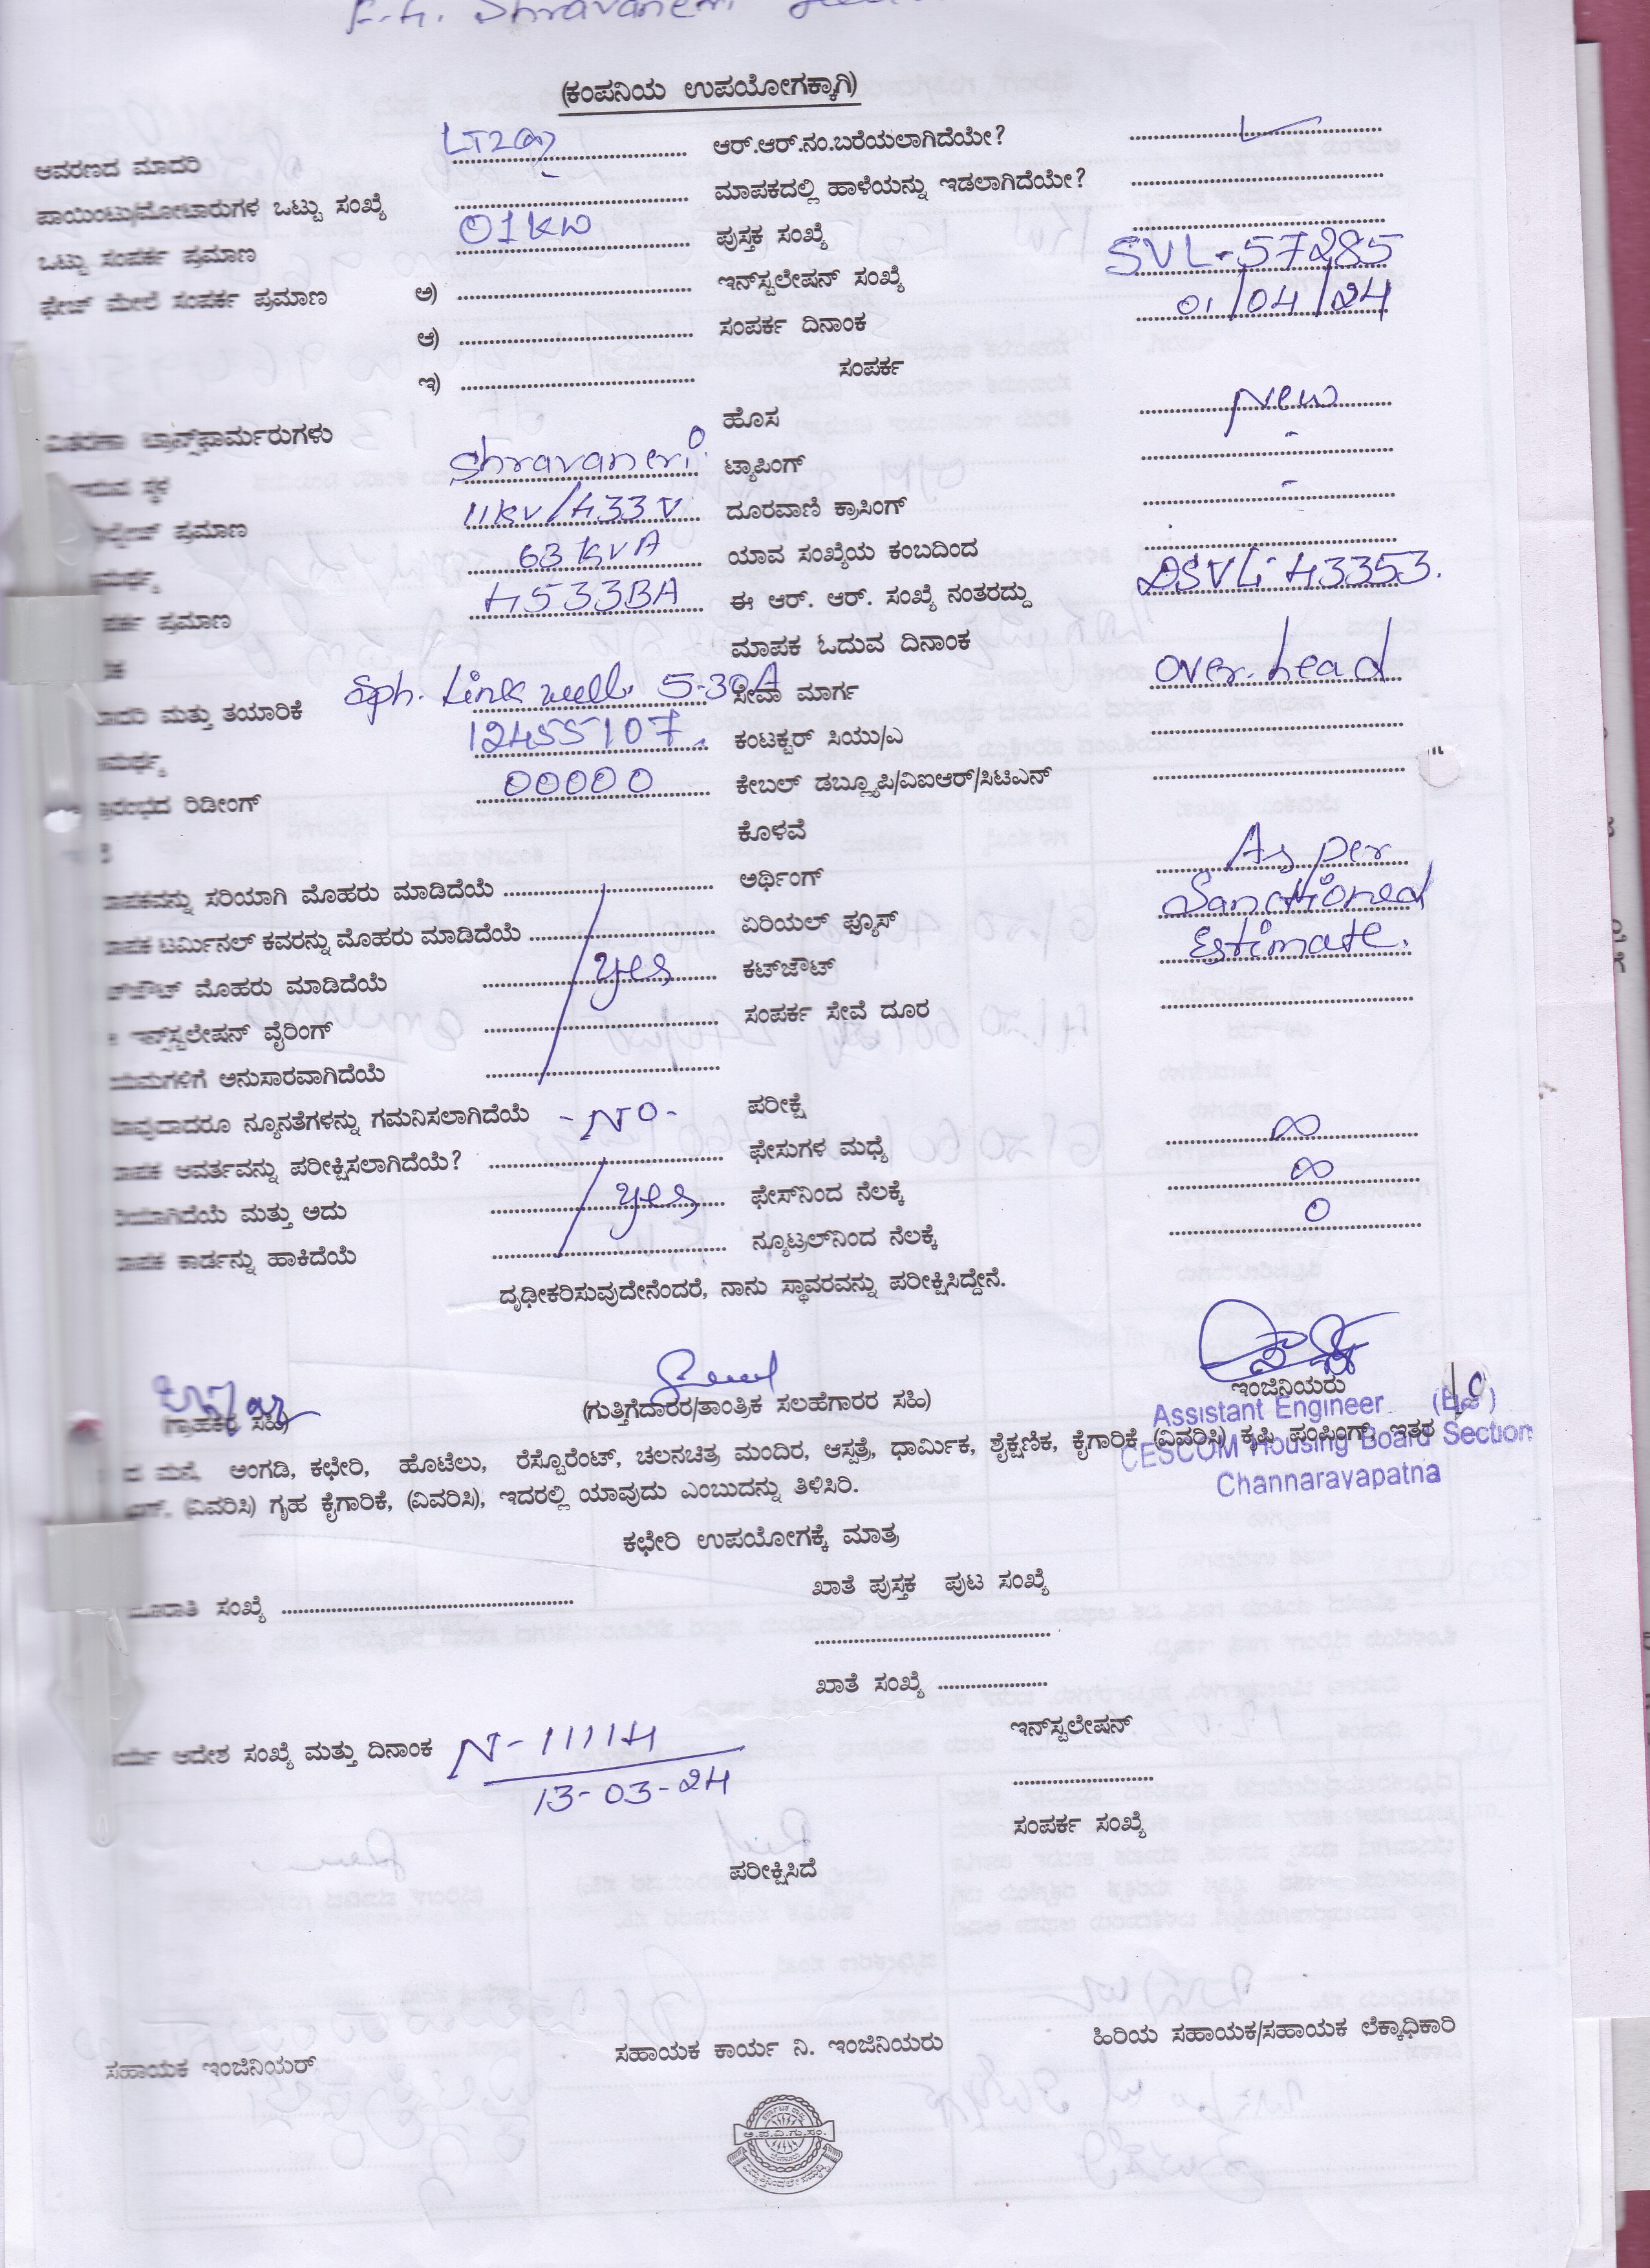 F-4. Shravaneri
(ಕಂಪನಿಯ ಉಪಯೋಗಕ್ಕಾಗಿ)
ಆವರಣದ ಮಾದರಿ LT2(a) ಆರ್.ಆರ್.ನಂ.ಬರೆಯಲಾಗಿದೆಯೇ?
ಪಾಯಿಂಟು/ಮೋಟಾರುಗಳ ಒಟ್ಟು ಸಂಖ್ಯೆ ಮಾಪಕದಲ್ಲಿ ಹಾಳೆಯನ್ನು ಇಡಲಾಗಿದೆಯೇ?
ಒಟ್ಟು ಸಂಪರ್ಕ ಪ್ರಮಾಣ 01KW ಪುಸ್ತಕ ಸಂಖ್ಯೆ
ಫೇಜ್ ಮೇಲೆ ಸಂಪರ್ಕ ಪ್ರಮಾಣ ಅ) ಇನ್‌ಸ್ಟಲೇಷನ್ ಸಂಖ್ಯೆ SVL-57285
ಆ) ಸಂಪರ್ಕ ದಿನಾಂಕ 01/04/24
ಇ) ಸಂಪರ್ಕ
ವಿತರಣಾ ಟ್ರಾನ್ಸ್‌ಫಾರ್ಮರುಗಳು ಹೊಸ New
ಸ್ಥಳ Shravaneri ಟ್ಯಾಪಿಂಗ್ -
ಪ್ರಮಾಣ 11KV/433V ದೂರವಾಣಿ ಕ್ರಾಸಿಂಗ್ -
63KVA ಯಾವ ಸಂಖ್ಯೆಯ ಕಂಬದಿಂದ
ಪ್ರಮಾಣ 4533BA ಈ ಆರ್. ಆರ್. ಸಂಖ್ಯೆ ನಂತರದ್ದು DSVL-43353.
ಮಾಪಕ ಓದುವ ದಿನಾಂಕ
ಮತ್ತು ತಯಾರಿಕೆ Sph. Linkwell 5-30A ಸೇವಾ ಮಾರ್ಗ over-head
12455107. ಕಂಟಕ್ಟರ್ ಸಿಯು/ಎ
ರಿಡೀಂಗ್ 00000 ಕೇಬಲ್ ಡಬ್ಲ್ಯೂಪಿ/ವಿಐಆರ್/ಸಿಟಿಎನ್
ಕೊಳವೆ
ಸರಿಯಾಗಿ ಮೊಹರು ಮಾಡಿದೆಯೆ ಅರ್ಥಿಂಗ್ As per
ಟರ್ಮಿನಲ್ ಕವರನ್ನು ಮೊಹರು ಮಾಡಿದೆಯೆ ಏರಿಯಲ್ ಫ್ಯೂಸ್ Sanctioned
ಮೊಹರು ಮಾಡಿದೆಯೆ yes ಕಟ್‌ಔಟ್ Estimate.
ಇನ್‌ಸ್ಟಲೇಷನ್ ವೈರಿಂಗ್ ಸಂಪರ್ಕ ಸೇವೆ ದೂರ
ಅನುಸಾರವಾಗಿದೆಯೆ
ನ್ಯೂನತೆಗಳನ್ನು ಗಮನಿಸಲಾಗಿದೆಯೆ -NO- ಪರೀಕ್ಷೆ
ಆವರ್ತವನ್ನು ಪರೀಕ್ಷಿಸಲಾಗಿದೆಯೆ? ಫೇಸುಗಳ ಮಧ್ಯೆ ∞
ಮತ್ತು ಅದು yes ಫೇಸ್‌ನಿಂದ ನೆಲಕ್ಕೆ ∞
ಕಾರ್ಡನ್ನು ಹಾಕಿದೆಯೆ ನ್ಯೂಟ್ರಲ್‌ನಿಂದ ನೆಲಕ್ಕೆ 0
ದೃಢೀಕರಿಸುವುದೇನೆಂದರೆ, ನಾನು ಸ್ಥಾವರವನ್ನು ಪರೀಕ್ಷಿಸಿದ್ದೇನೆ.
ಗ್ರಾಹಕರ ಸಹಿ) (ಗುತ್ತಿಗೆದಾರರ/ತಾಂತ್ರಿಕ ಸಲಹೆಗಾರರ ಸಹಿ) ಇಂಜಿನಿಯರು
Assistant Engineer
CESCOM Housing Board Section
Channaravapatna
ಮನೆ, ಅಂಗಡಿ, ಕಛೇರಿ, ಹೊಟೆಲು, ರೆಸ್ಟೊರೆಂಟ್, ಚಲನಚಿತ್ರ ಮಂದಿರ, ಆಸ್ಪತ್ರೆ, ಧಾರ್ಮಿಕ, ಶೈಕ್ಷಣಿಕ, ಕೈಗಾರಿಕೆ (ವಿವರಿಸಿ) ಕೃಷಿ ಪಂಪಿಂಗ್, ಇತರ
(ವಿವರಿಸಿ) ಗೃಹ ಕೈಗಾರಿಕೆ, (ವಿವರಿಸಿ), ಇದರಲ್ಲಿ ಯಾವುದು ಎಂಬುದನ್ನು ತಿಳಿಸಿರಿ.
ಕಛೇರಿ ಉಪಯೋಗಕ್ಕೆ ಮಾತ್ರ
ಸಂಖ್ಯೆ ಖಾತೆ ಪುಸ್ತಕ ಪುಟ ಸಂಖ್ಯೆ
ಖಾತೆ ಸಂಖ್ಯೆ
ಆದೇಶ ಸಂಖ್ಯೆ ಮತ್ತು ದಿನಾಂಕ N-11114 ಇನ್‌ಸ್ಟಲೇಷನ್
13-03-24
ಸಂಪರ್ಕ ಸಂಖ್ಯೆ
ಪರೀಕ್ಷಿಸಿದೆ
ಸಹಾಯಕ ಇಂಜಿನಿಯರ್ ಸಹಾಯಕ ಕಾರ್ಯ ನಿ. ಇಂಜಿನಿಯರು ಹಿರಿಯ ಸಹಾಯಕ/ಸಹಾಯಕ ಲೆಕ್ಕಾಧಿಕಾರಿ